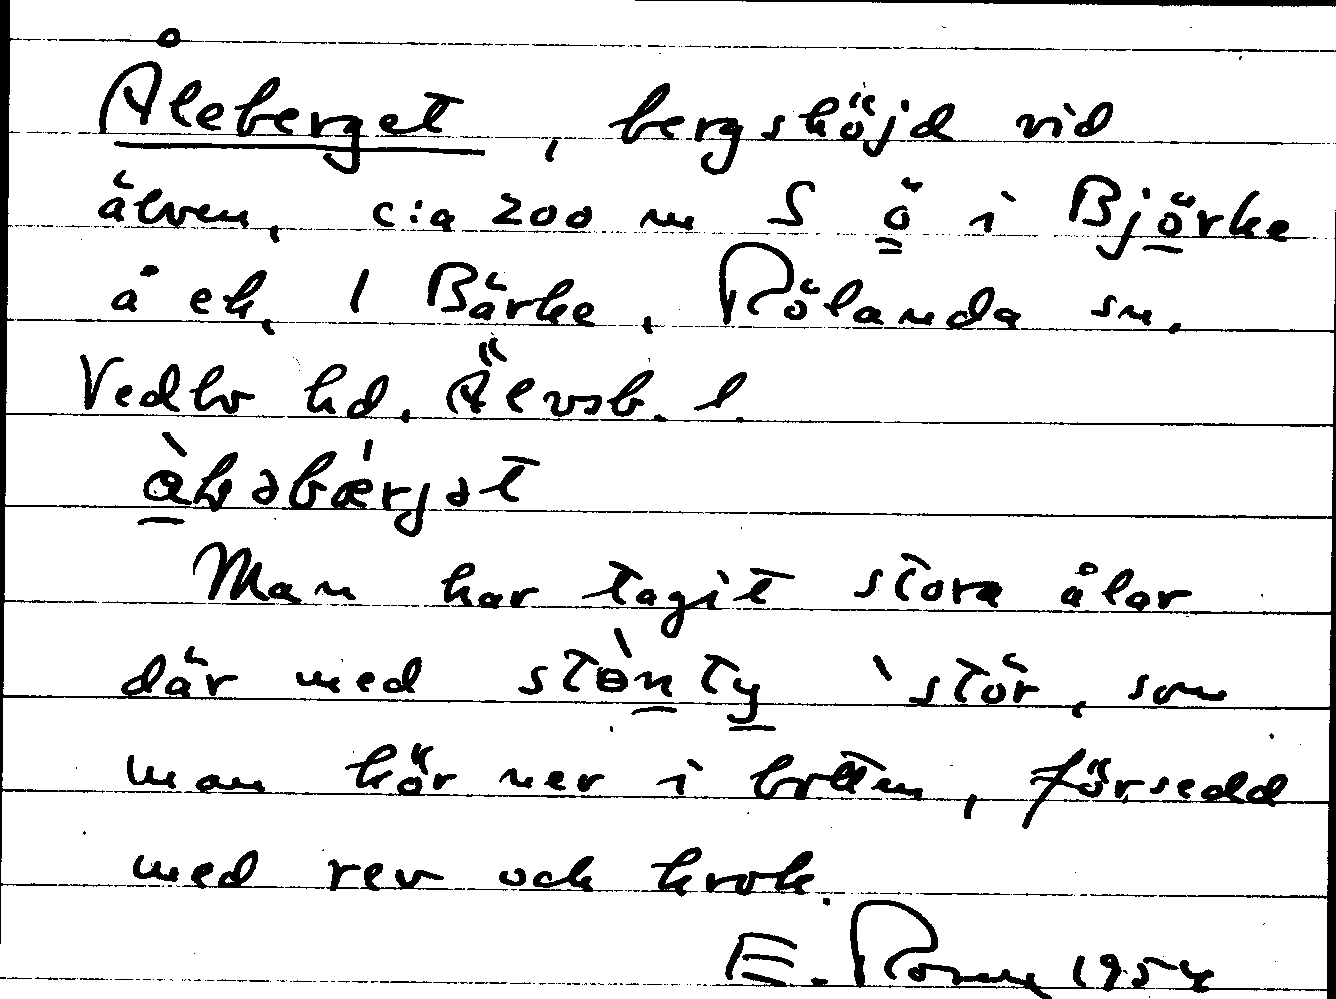 Åleberget, bergshöjd vid
älven, c:a 200 m S ö i Björke
å ek, 1 Bärke, Rölanda sn,
Vedbo hd. Älvsb. l.
Man har tagit stora ålar
där med stör, som
man kör ner i botten, försedd
med rev och krok.
E. 1954